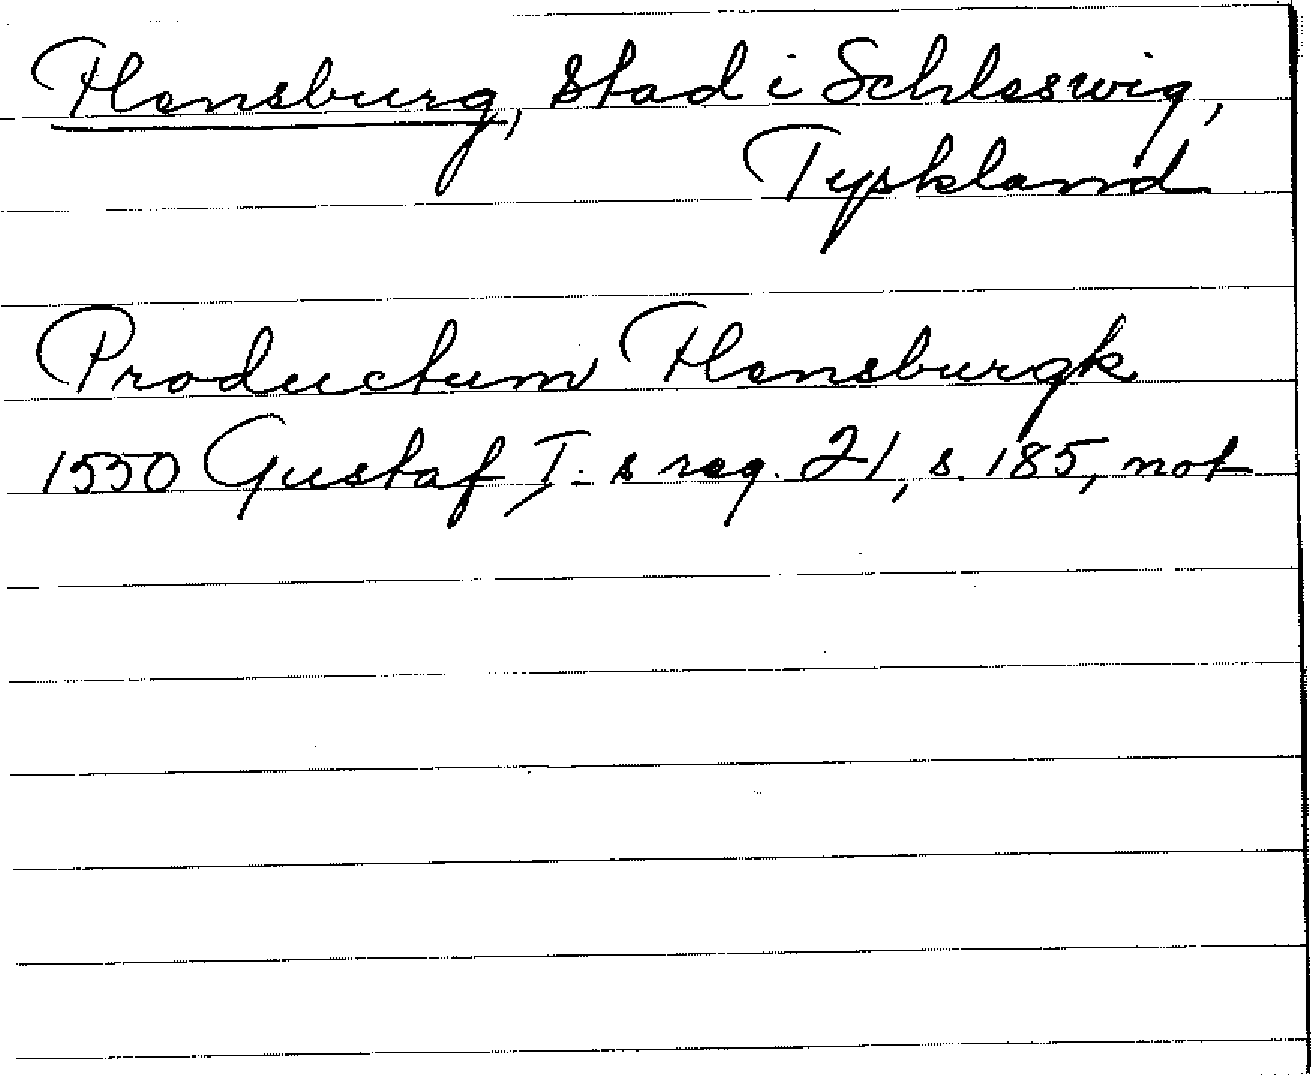 Flensburg, stad i Schleswig,
Tyskland
Productum Flensburgk
1550 Gustaf I:s reg. 21, s. 185, not